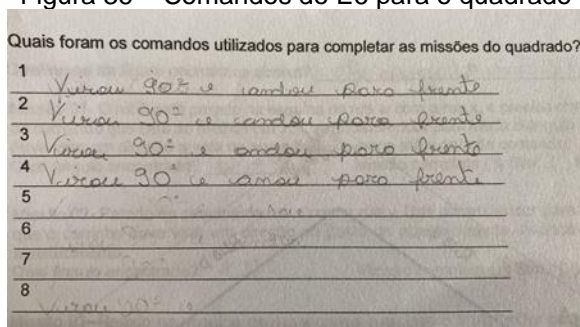 Figura 36 – Comandos de E6 para o quadrado
Quais foram os comandos utilizados para completar as missões do quadrado?
1 Virou 90º e andou para frente
2 Virou 90º e andou para frente
3 Virou 90º e andou para frente
4 Virou 90º e anou para frente
5
6
7
8 Virou 90º e